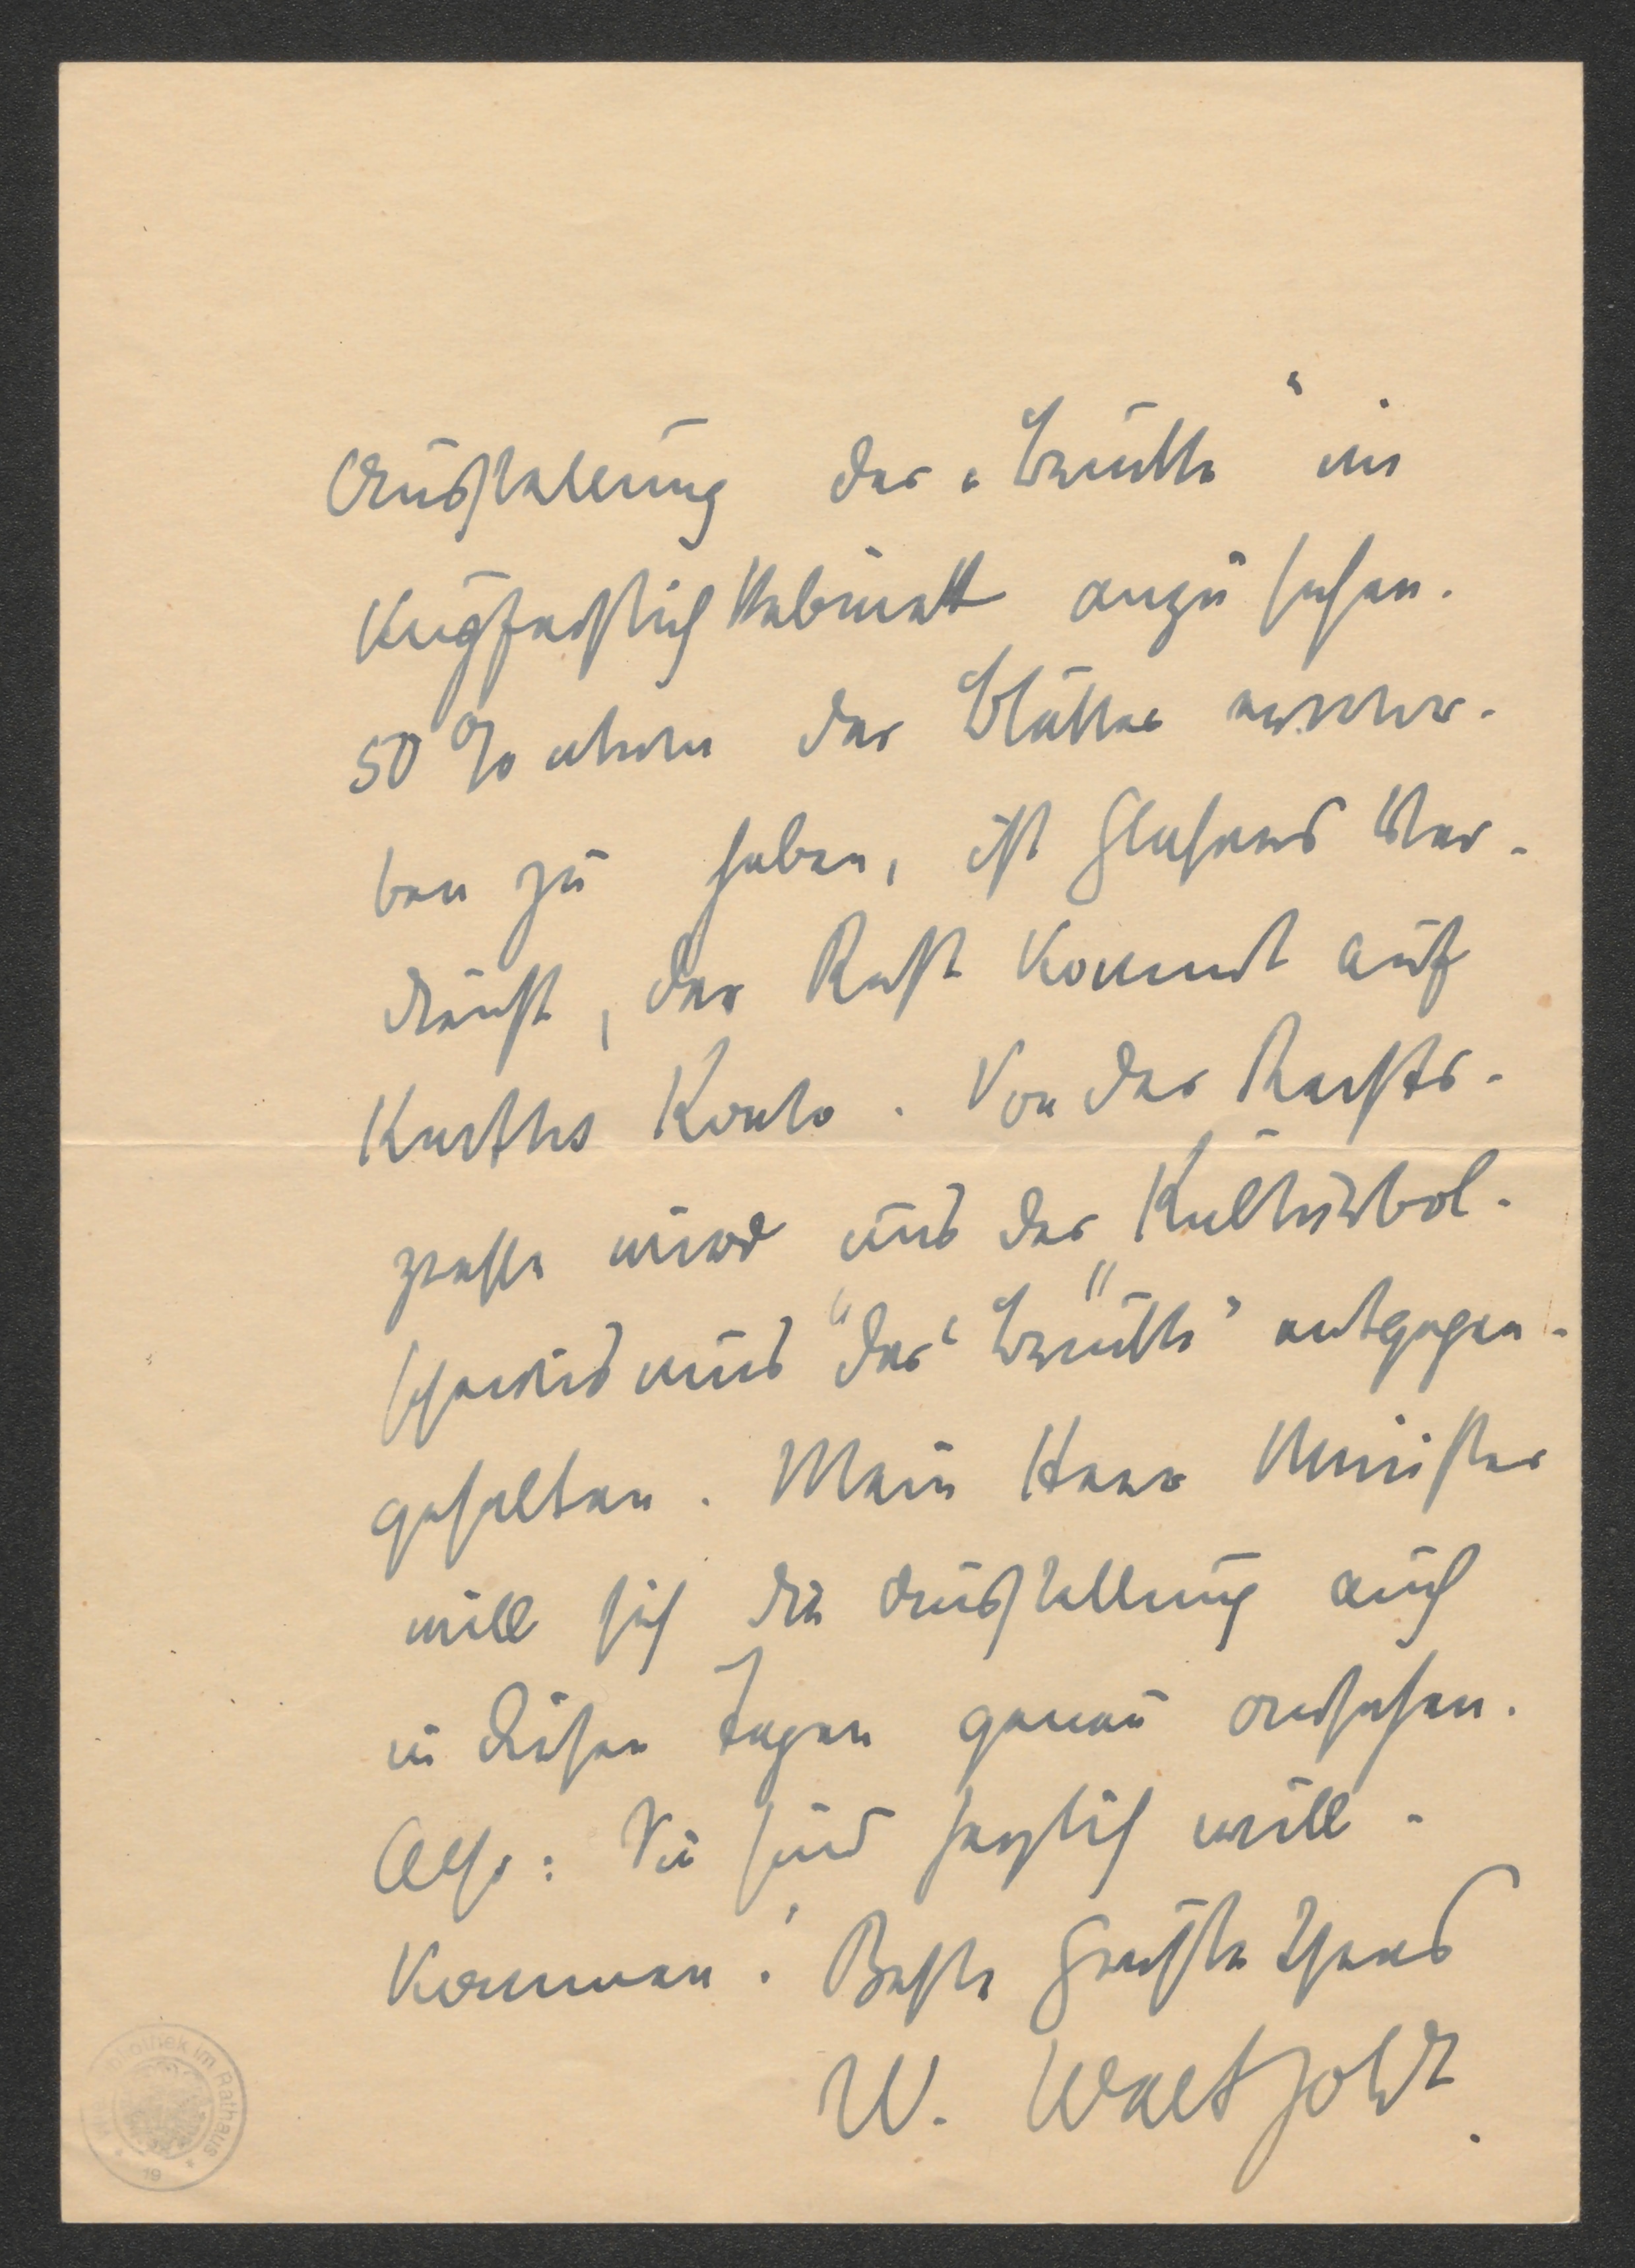 Ausstellung der „Brücke“ im
Kupferstichkabinett anzusehen.
50 % etwa der Blätter erwor-
ben zu haben, ist Glasers Ver-
dienst, der Rest kommt auf
Kurths Konto. Von der Rechts-
presse wird uns der „Kulturbol-
schewismus“ der „Brücke“ entgegen-
gehalten. Mein Herr Minister
will sich die Ausstellung auch
in diesen Tagen genau ansehen.
Also: Sie sind herzlich will-
kommen! Beste Grüße Ihres
W. Waetzoldt.
Bibliothek im Rathaus
19